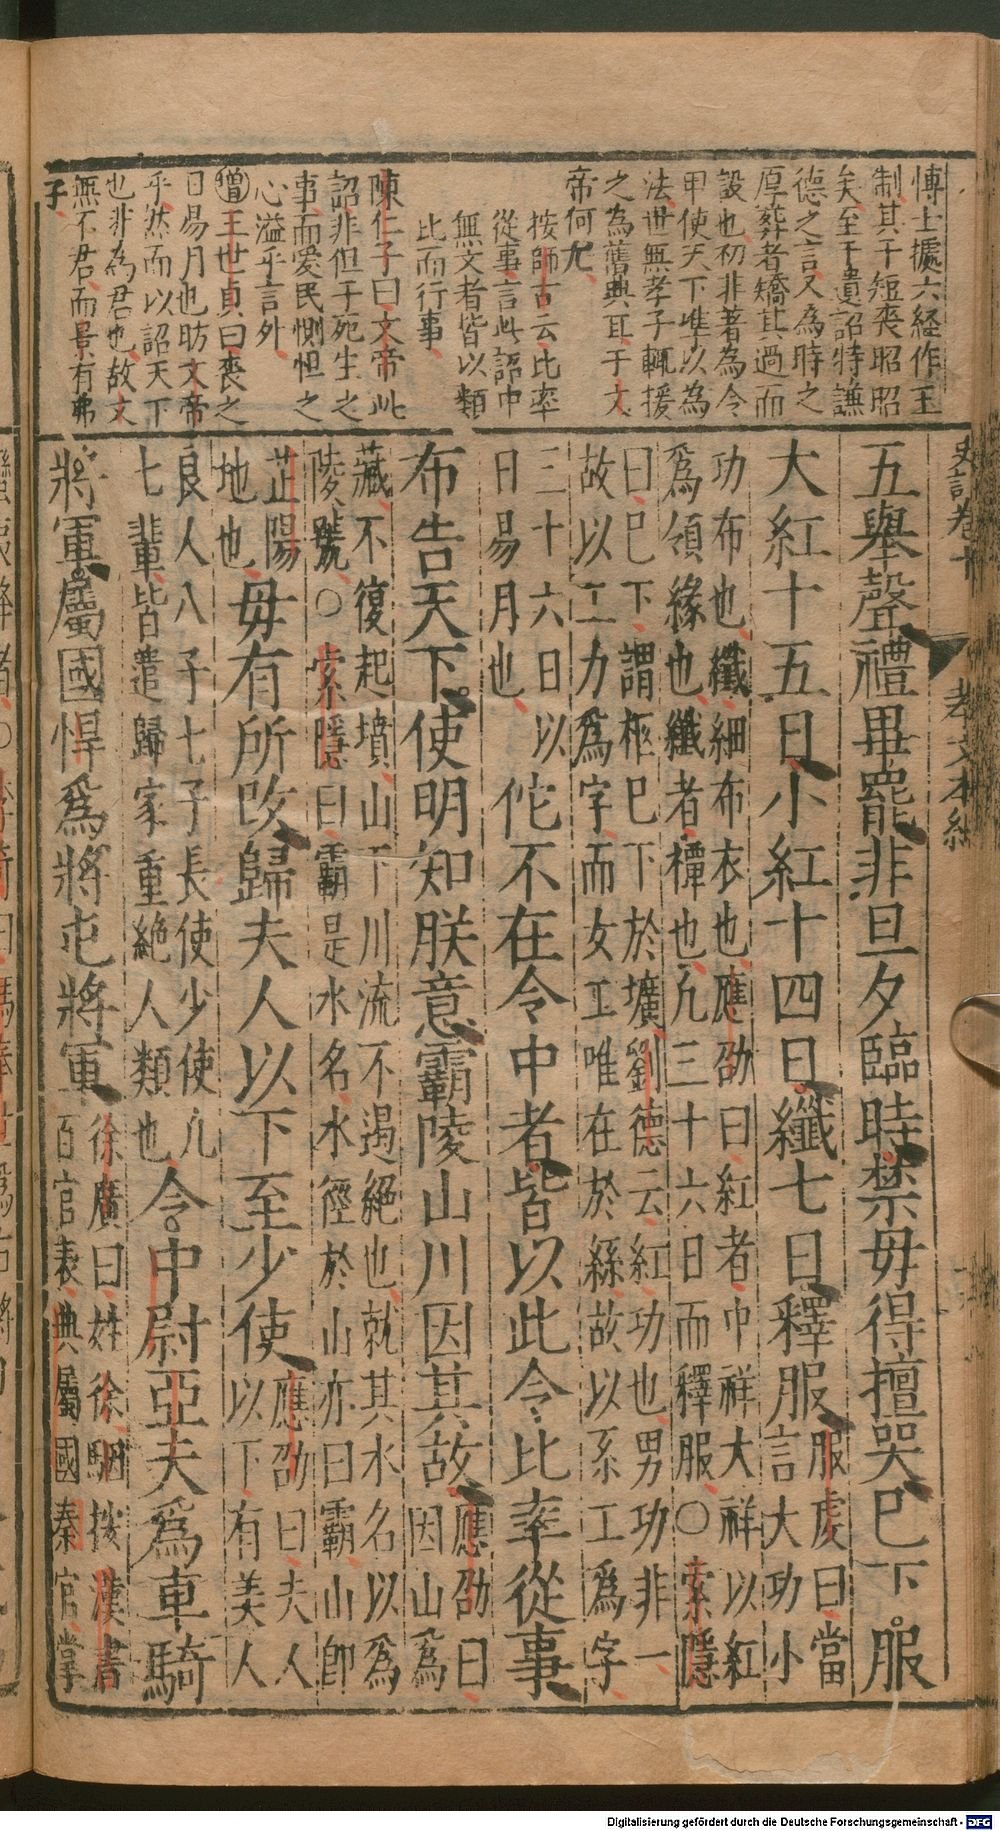 博士據六経作王
制其干短喪昭昭
矣至于遺詔特謙
德之言又為時之
厚葬者矯其過而
設也初非著為令
甲使天下準以為
法世無孝子輒援
之為舊典耳于文
帝何尤
按師古云比率
從事言此詔中
無文者皆以類
比而行事
陳仁子曰文帝此
詔非但于死生之
事而愛民惻怛之
心溢乎言外
增王世貞曰喪之
日易月也昉文帝
乎然而以詔天下
也非為君也故文
無不君而景有弗
子
史記卷十 孝文本紀
五舉聲禮畢罷非旦夕臨時禁毋得擅哭巳下服
大紅十五日小紅十四日纖七日釋服服虔曰當
言大功小
功布也纖細布衣也應劭曰紅者中祥大祥以紅
爲領緣也纖者禫也凡三十六日而釋服○索隱
曰巳下謂柩巳下於壙劉德云紅功也男功非一
故以工力爲字而女工唯在於絲故以系工爲字
三十六日以
日易月也
佗不在令中者皆以此令比率從事
布告天下使明知朕意霸陵山川因其故應劭曰
因山爲
藏不復起墳山下川流不遏絕也就其水名以爲
陵號○索隱曰霸是水名水徑於山亦曰霸山即
芷陽
地也
毋有所改歸夫人以下至少使應劭曰夫人
以下有美人
良人八子七子長使少使凡
七輩皆遣歸家重絕人類也
令中尉亞夫爲車騎
將軍屬國悍爲將屯將軍徐廣曰姓徐駰按漢書
百官表典屬國秦官掌
Digitalisierung gefördert durch die Deutsche Forschungsgemeinschaft - DFG